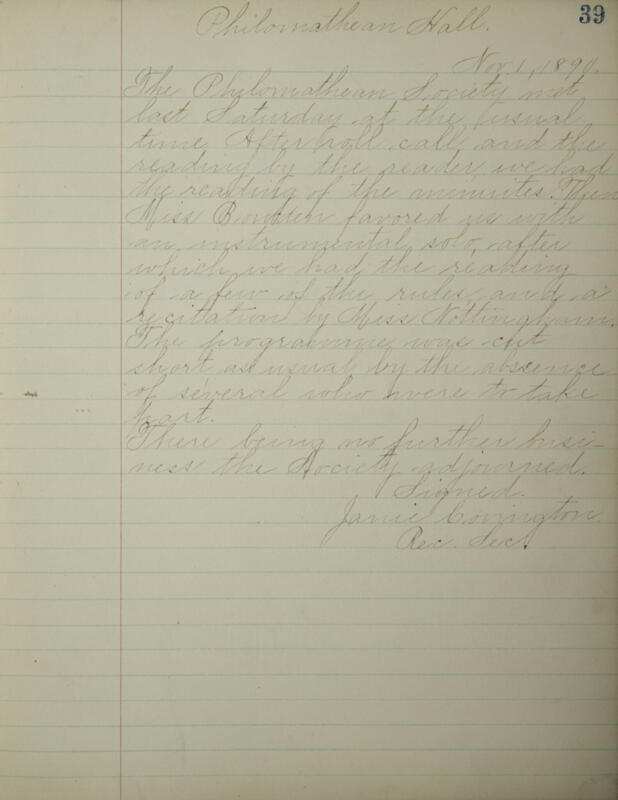 39
Philomathean Hall.
Nov. 1, 1890.
The Philomathean Society met
last Saturday at the usual
time. After roll call and the
reading by the reader we had
the reading of the menuites. Then
Miss Bowden favored us with
an instrumental solo, after
which we had the reading
of a few of the rules and a
recitation by Miss Nottingham.
The programme was cut
short as usual by the absence
of several who were to take
part.
There being no further busi-
ness the Society adjourned.
Signed.
Janie Covington.
Rec. Sec.